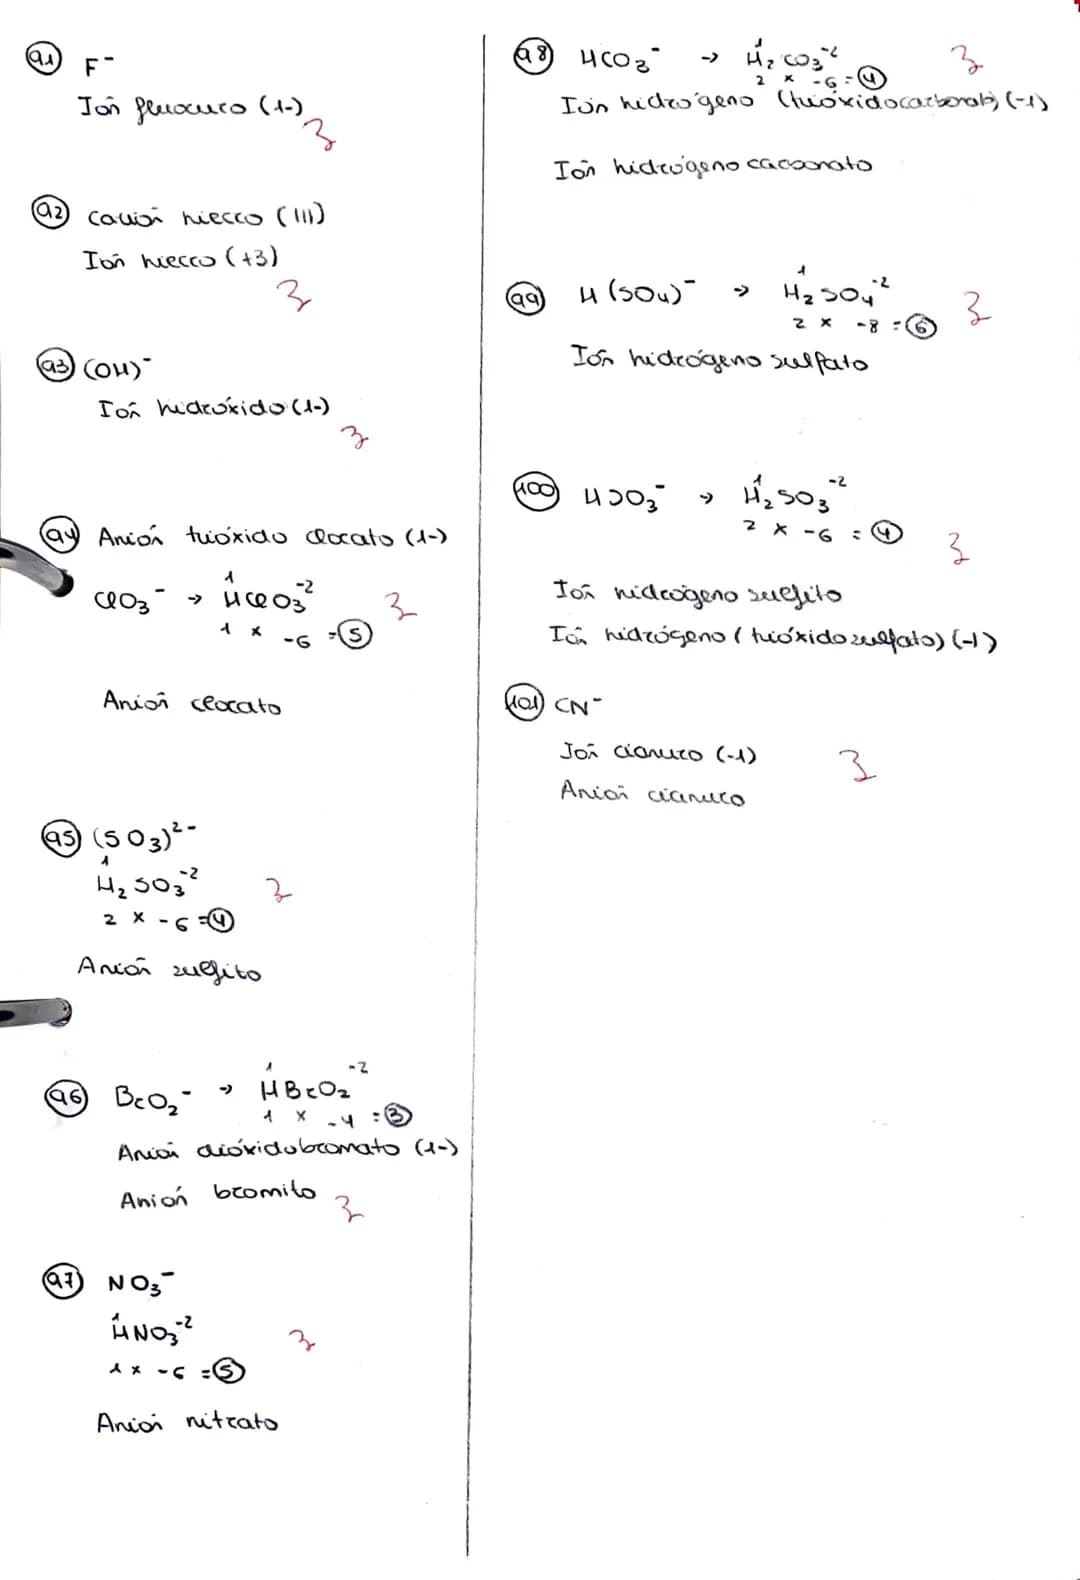 91 F⁻
Ión fluoruro (1-)
3
92 catión hierro (III)
Ión hierro (+3)
3
93 (OH)⁻
Ión hidróxido (1-)
3
94 Anión trióxido clorato (1-)
1 -2
ClO₃⁻ → HClO₃ 3
1 x -6 = 5
Anión clorato
95 (SO₃)²⁻
1 -2
H₂SO₃ 3
2 x -6 = 4
Anión sulfito
1 -2
96 BrO₂⁻ → HBrO₂
1 x -4 = 3
Anión dióxidobromato (1-)
Anión bromito
3
97 NO₃⁻
1 -2
HNO₃ 3
1 x -6 = 5
Anión nitrato
1 -2
98 HCO₃⁻ → H₂CO₃ 3
2 x -6 = 4
Ión hidrógeno (trióxidocarbonato) (-1)
Ión hidrógeno carbonato
1 -2
99 H(SO₄)⁻ → H₂SO₄ 3
2 x -8 = 6
Ión hidrógeno sulfato
1 -2
100 HSO₃⁻ → H₂SO₃
2 x -6 = 4 3
Ión hidrógeno sulfito
Ión hidrógeno (trióxidosulfato) (-1)
101 CN⁻
Ión cianuro (-1) 3
Anión cianuro